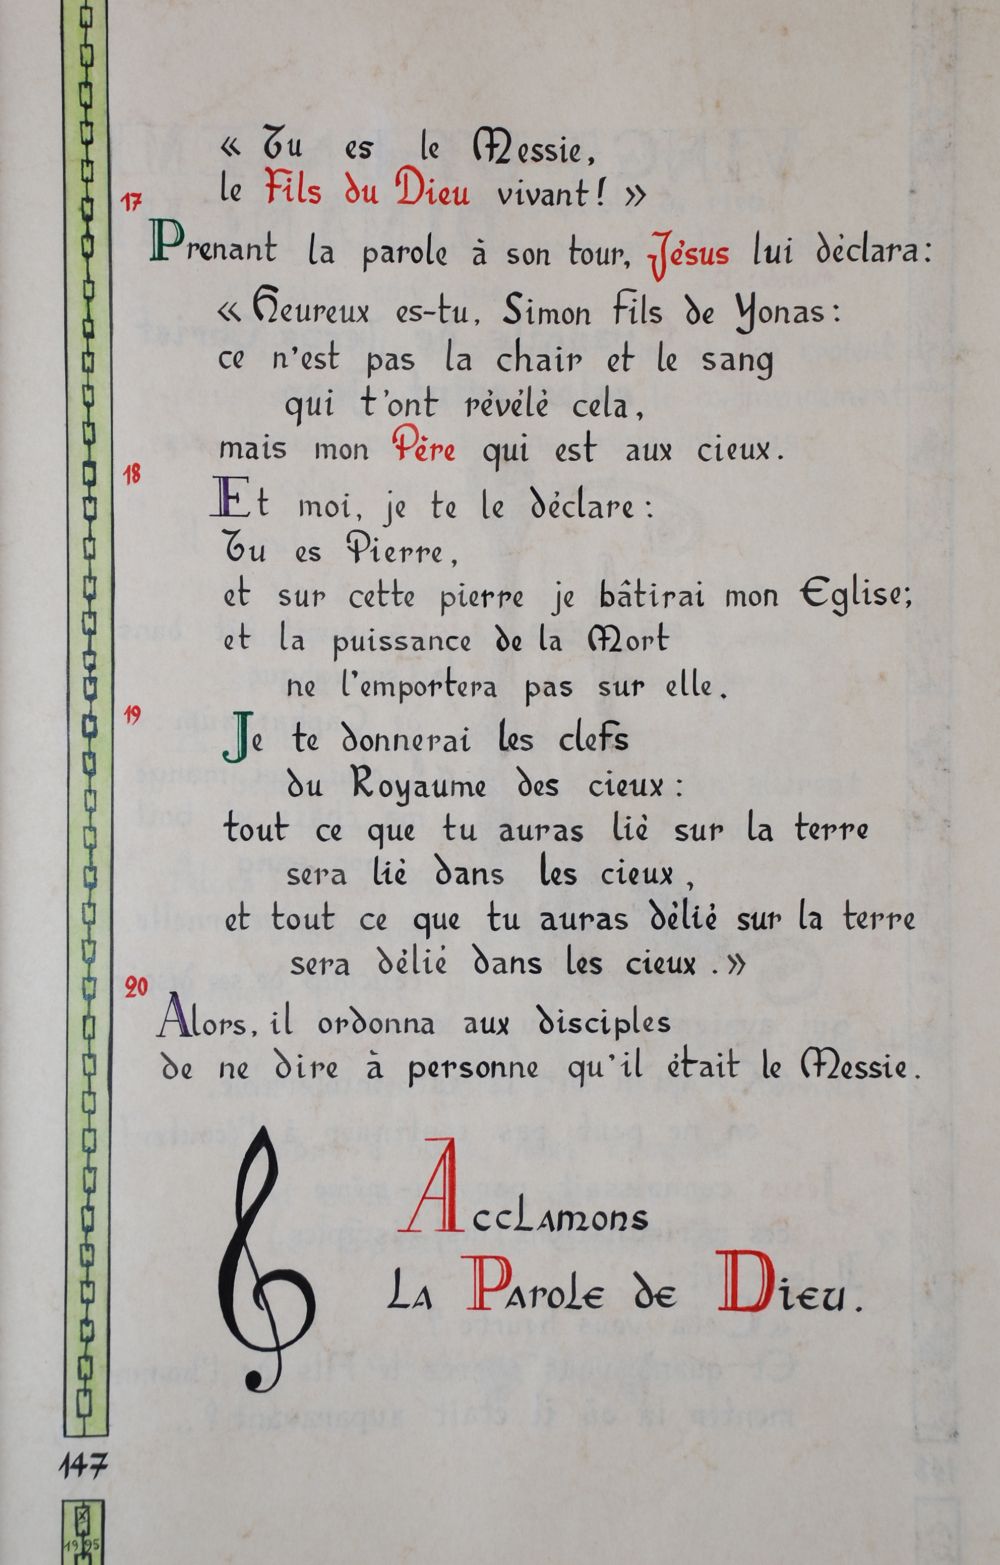 « Tu es le Messie,
le Fils du Dieu vivant ! »
17
Prenant la parole à son tour, Jésus lui déclara :
« Heureux es-tu, Simon fils de Yonas :
ce n'est pas la chair et le sang
qui t'ont révélé cela,
mais mon Père qui est aux cieux.
18
Et moi, je te le déclare :
Tu es Pierre,
et sur cette pierre je bâtirai mon Eglise ;
et la puissance de la Mort
ne l'emportera pas sur elle.
19
Je te donnerai les clefs
du Royaume des cieux :
tout ce que tu auras lié sur la terre
sera lié dans les cieux,
et tout ce que tu auras délié sur la terre
sera délié dans les cieux. »
20
Alors, il ordonna aux disciples
de ne dire à personne qu'il était le Messie.
Acclamons
La Parole de Dieu.
147
1995